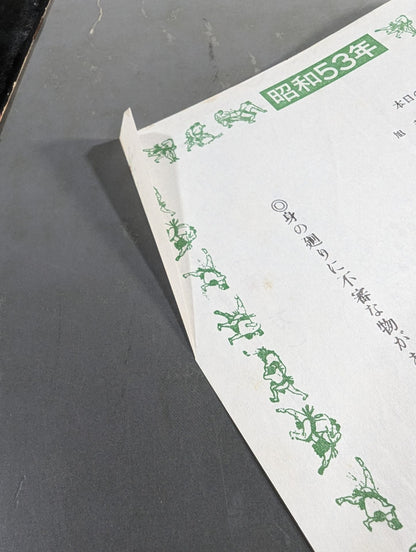 昭和53年
本日の
旭
◎身の廻りに不審な物が